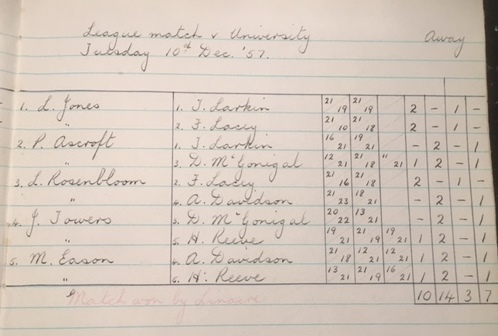 League match v University Away
Tuesday 10th Dec. '57.
1. L. Jones 1. T. Larkin 21 19 21 19 2 - 1 -
" 2. F. Lacey 21 10 21 18 2 - 1 -
2. P. Ascroft 1. T. Larkin 16 21 19 21 - 2 - 1
" 3. D. McGonigal 12 21 21 18 11 21 1 2 - 1
3. L. Rosenbloom 2. F. Lacey 21 16 21 18 2 - 1 -
" 4. A. Davidson 21 23 18 21 - 2 - 1
4. J. Towers 3. D. McGonigal 20 22 13 21 - 2 - 1
" 5. H. Reeve 19 21 21 19 19 21 1 2 - 1
5. M. Eason 4. A. Davidson 21 18 12 21 12 21 1 2 - 1
" 5. H. Reeve 13 21 21 19 16 21 1 2 - 1
Match won by Linacre 10 14 3 7